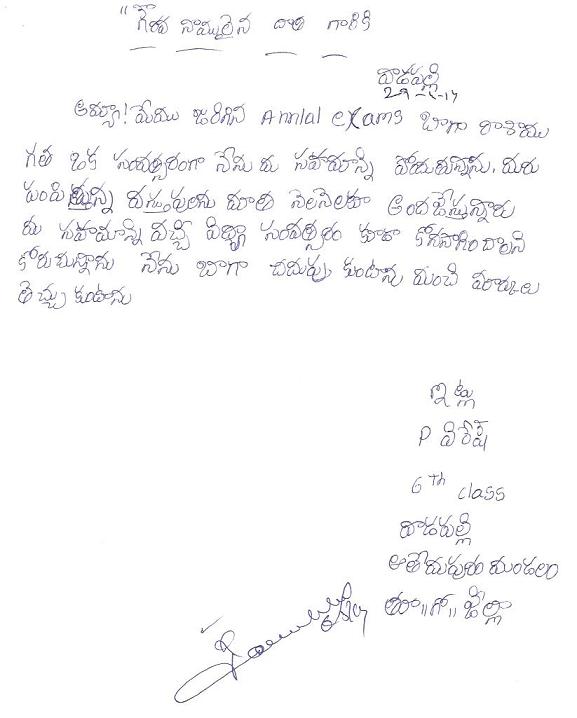 "గౌరవ నీయులైన దాత గారికి
రాడపల్లి
29-4-14
అయ్యా! మేము జరిగిన Annlal exams బాగా రాశాము
గత ఒక సంవత్సరంగా నేను మీ సహాయాన్ని పొందుచున్నాను. మీరు
పంపిస్తున్న వస్తువులను మాకు నెలనెలా అందజేస్తున్నారు
మీ సహాయాన్ని వచ్చే విద్యా సంవత్సరం కూడా కొనసాగించాలని
కోరుచున్నాను నేను బాగా చదువు కుంటాను మంచి మార్కులు
తెచ్చు కుంటాను
ఇట్లు
P వీరేష్
6th class
రాడపల్లి
ఆత్రేయపురం మండలం
తూ"గో" జిల్లా